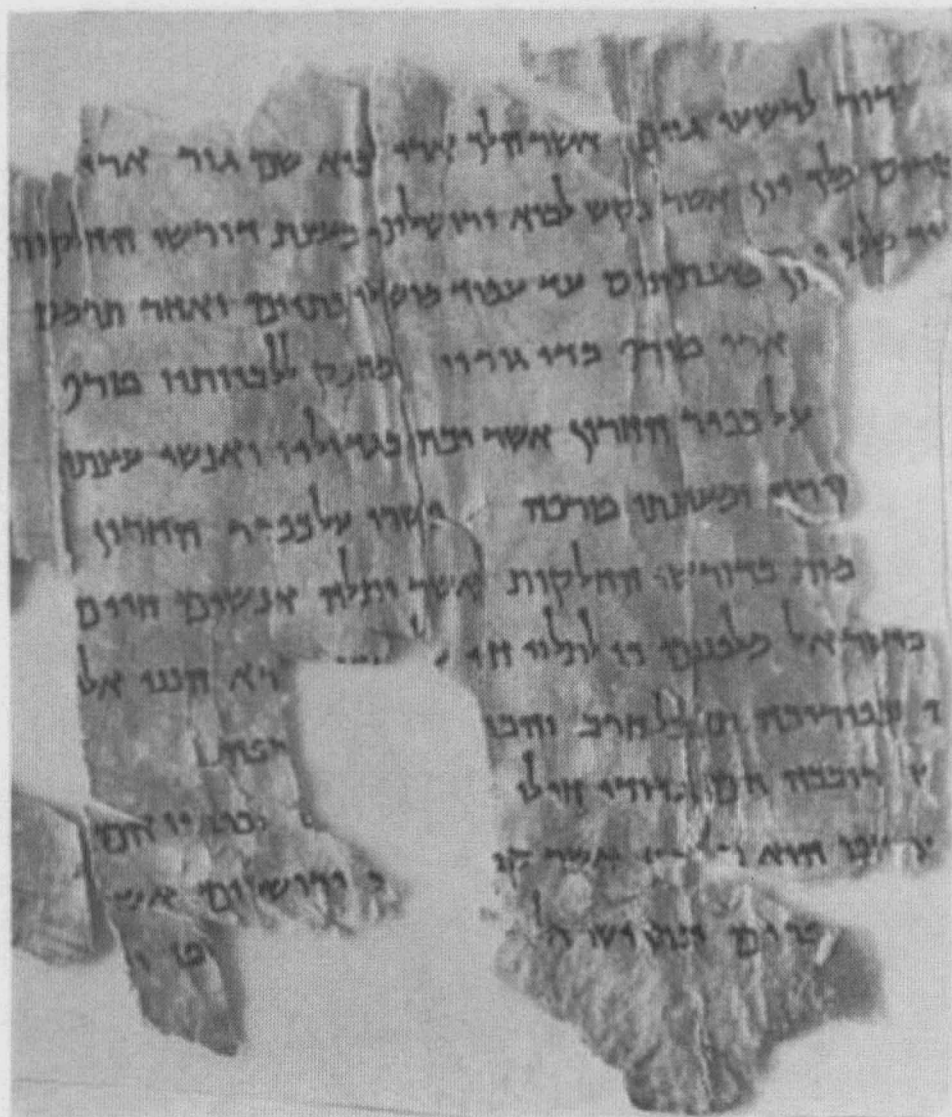 דור לרשעי גוים אשר הלך ארי לביא שם גור ארי
טרוס מלך יון אשר בקש לבוא ירושלים בעצת דורשי החלקות
יד מלכי יון מאנתיכוס עד עמוד מושלי כתיים ואחר תרמס
ארי טורף בדי גוריו ומחנק ללביותיו טרף
על כפיר החרון אשר יכה בגדוליו ואנשי עצתו
ומעונתו טרפה פשרו על כפיר החרון
מות בדורשי החלקות אשר יתלה אנשים חיים
בישראל מלפנים כי לתלוי חי רא הנני אלי
וכפיריכה חרב והכר רפה
רובכה הם גדודי חילו וכפיריו הם
הוא אשר קב י ירושלים אשר
פרים ינתן ישראל